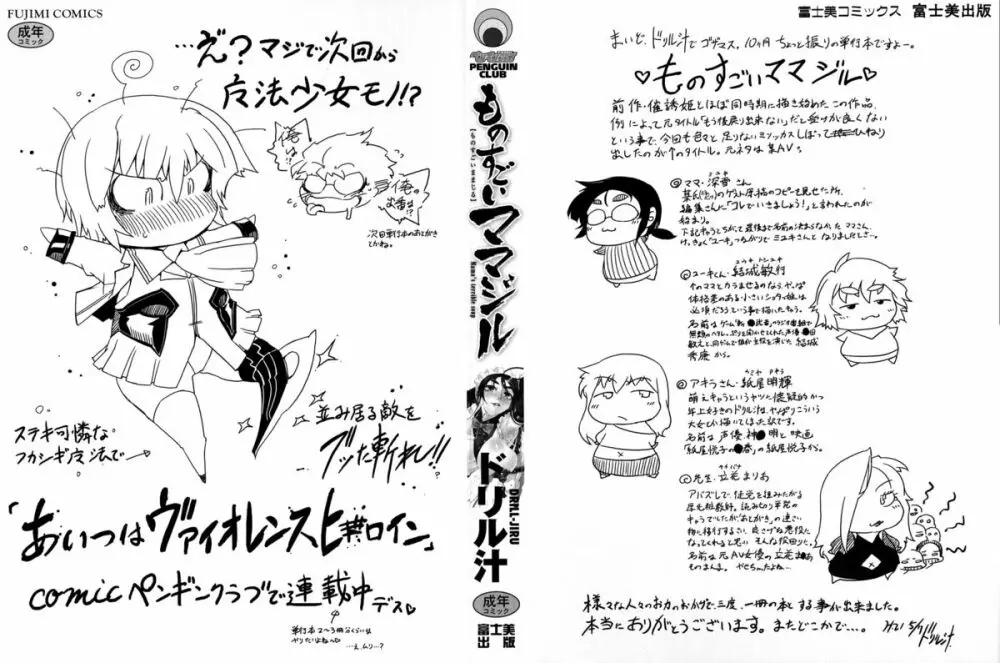 FUJIMI COMICS
成年
コミック
…え?マジで次回から
魔法少女モノ!?
俺は!
俺。
出番は!?
次回単行本のあとがき
とかね。
ステキ可憐な
フカシギ魔法で
並み居る敵を
ブッた斬れ!!
「あいつはヴァイオレンスヒロイン」
comicペンギンクラブで連載中
デス♥
単行本2〜3冊分くらいは
やりたいよね
…え、ムリ…?
PENGUIN
CLUB
ものすごいママジル
【ものすごいままじる】
Mama's terrible soup
ドリル汁
DRILL-JIRU
成年
コミック
富士美
出版
富士美コミックス 富士美出版
まいど、ドリル汁でゴザマス。10ヶ月ちょっと振りの単行本ですよー。
♡ものすごいママジル♡
前作・催誘姫とほぼ同時期に描き始めたこの作品、
例によって元タイトル「もう後戻り出来ない」だと受けが良くない
という事で、今回も君々と足りないミソッカスしぼってひねり
出したのが↑のタイトル。元ネタは某AV。
ママ・深雪さん
のゲスト原稿のコピーを見せた所、
編集さんに「コレでいきましょう!」と言われたのが
始まり。
下記キャラとちがって最後まで名前の決まらなかったママさん。
けっきょく「ユーキ」つながりでミユキさんとなりましたとさー。
ユーキくん・結城敏行
↑のママとカラませるのなら、やっぱ
体格差のある小さいショタっ娘は
必須だろうという事で描いたキャラ。
結城
秀康から。
アキラさん・紙屋明輝
萌えキャラというヤツに懐疑的かつ
年上好きのドリル汁、やっぱりこういう
大女も描いてしまった訳です。
名前は声優・神●明と映画
「紙屋悦子の●春」の紙屋悦子から。
先生・立花まりあ
アバズレして、徒党を組みたがる
名前は元AV女優の立花まりあ
ものまんま。
様々な人々のお力のおかげで、三度、一冊の本とする事が出来ました。
本当にありがとうございます。またどこかで…。
H21 5/7 ドリル汁